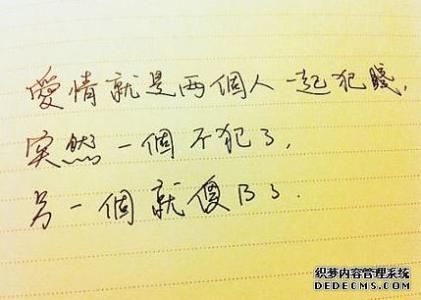 愛情就是两個人一起犯賤，
突然一個不犯了，
另一個就傻B了.
织梦内容管理系统
DEDECMS.COM